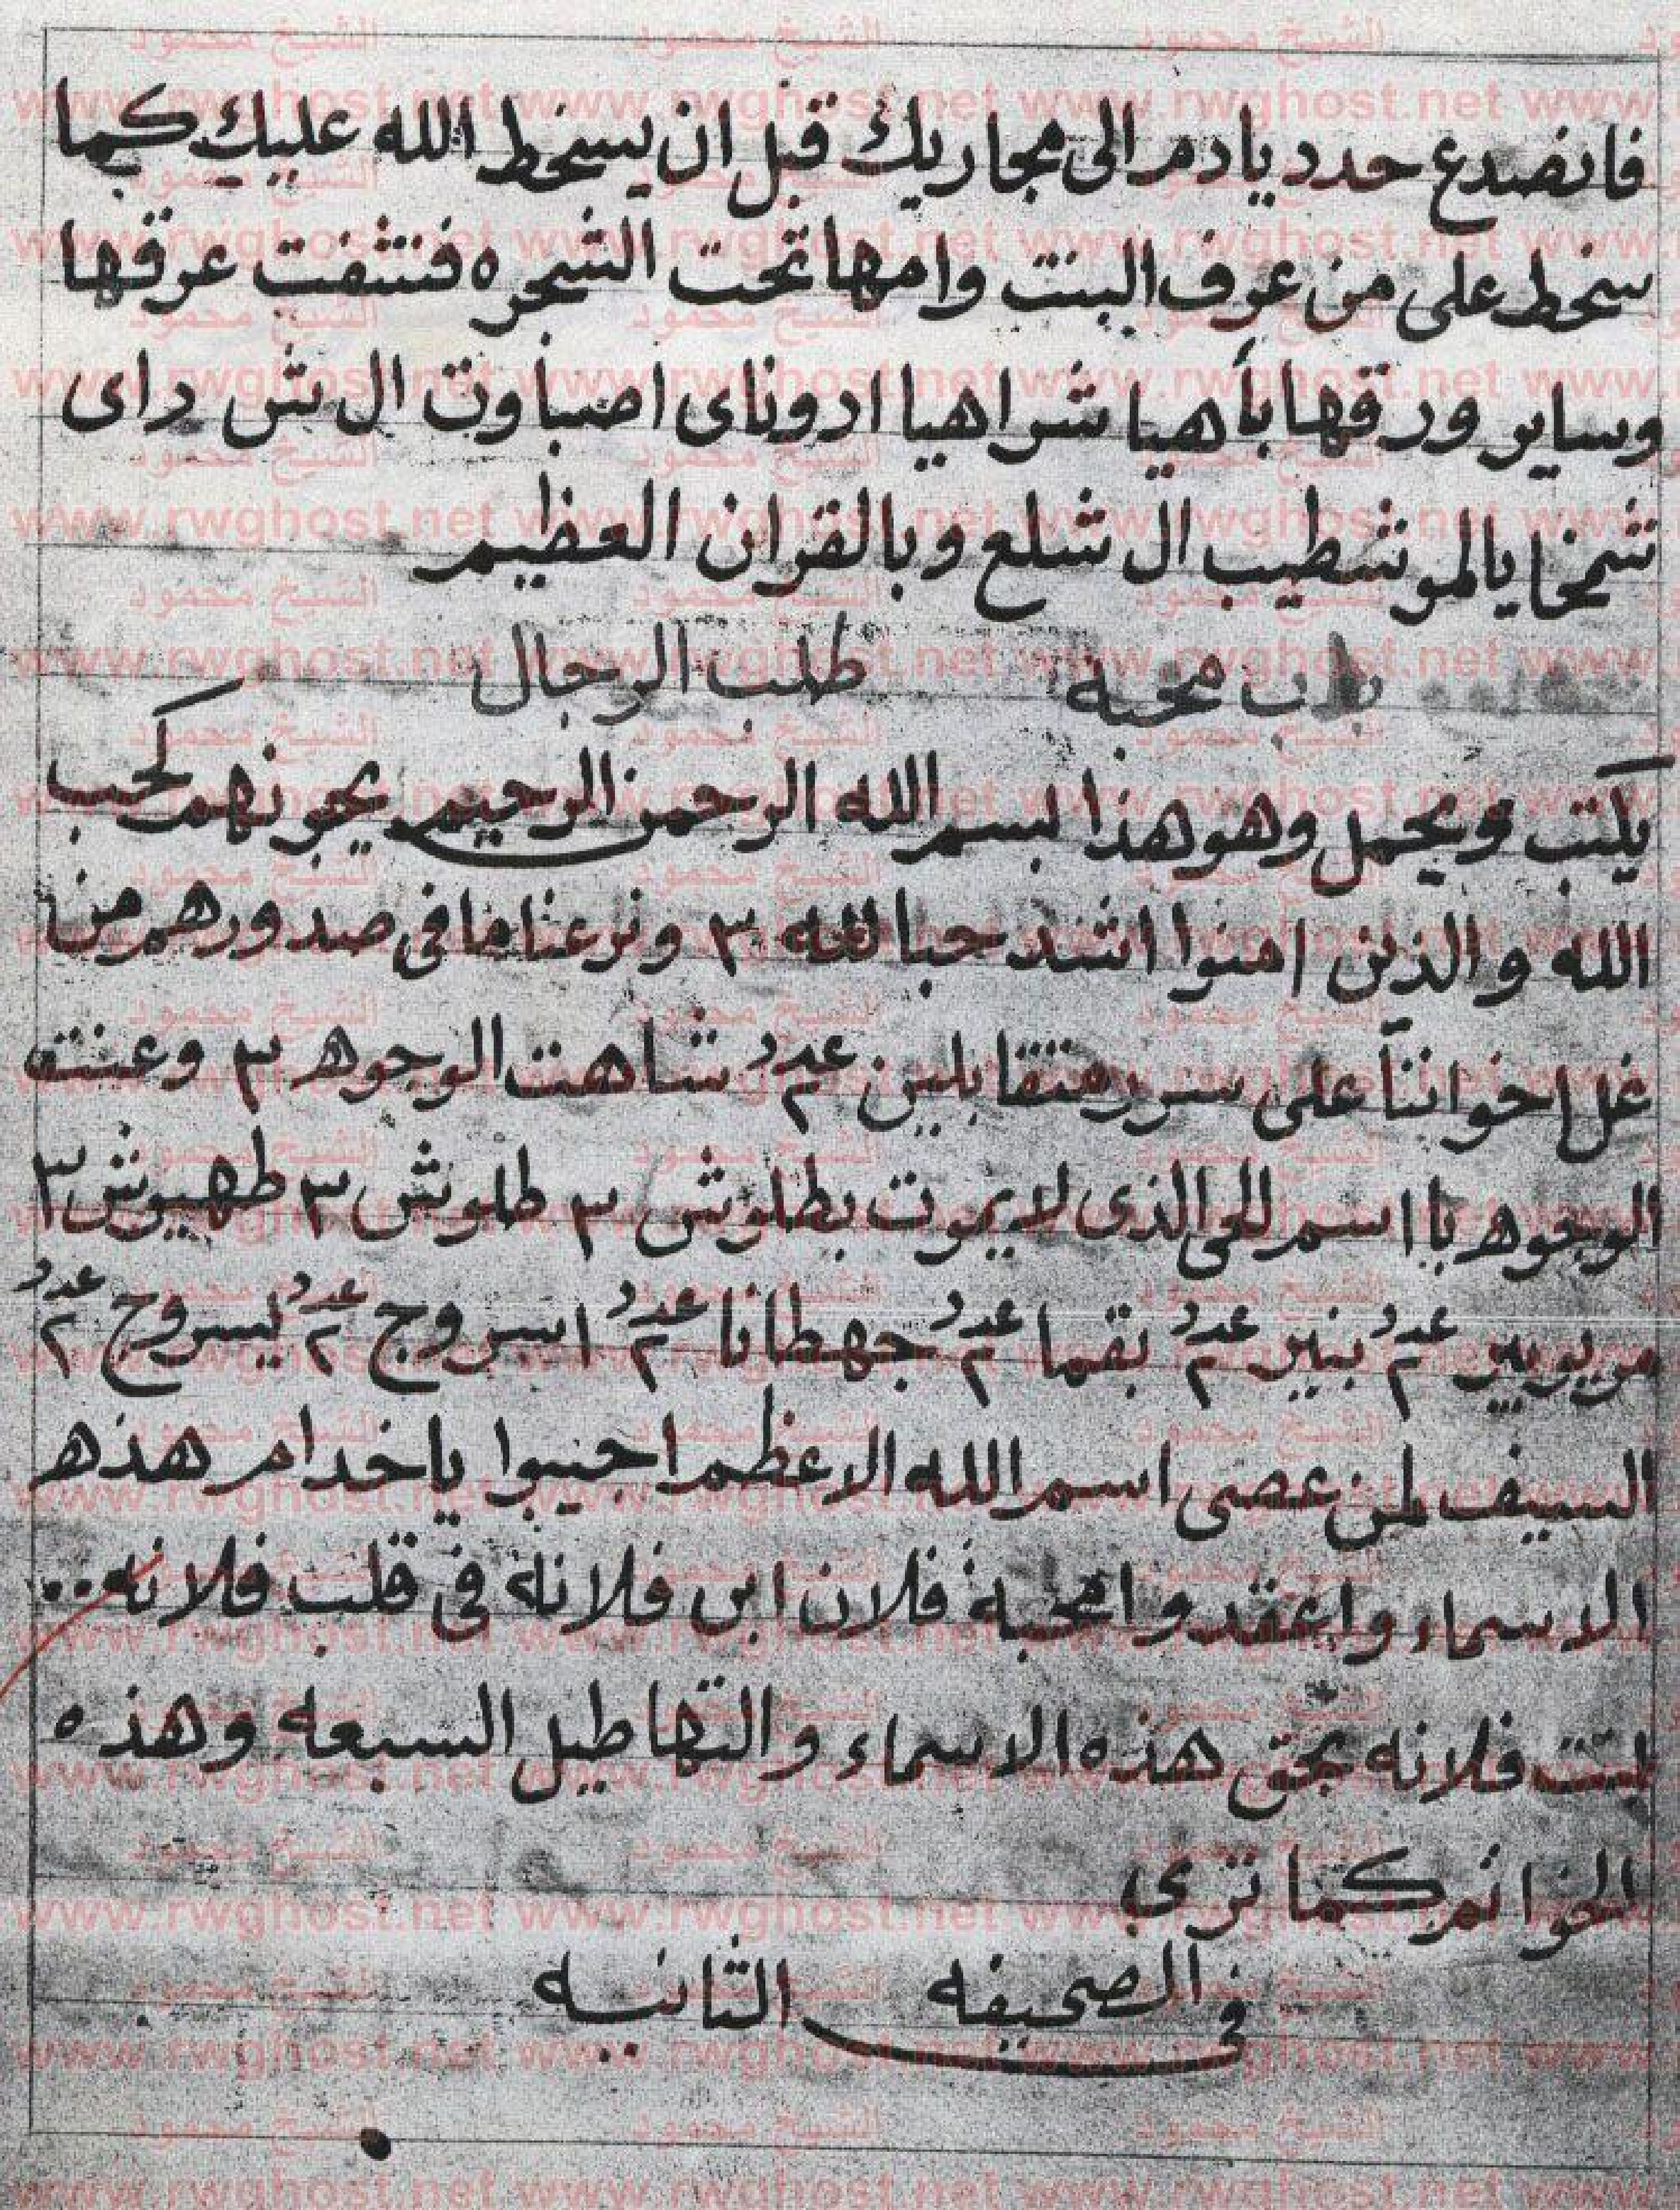 فانصدع حدد يادم الى مجاريك قبل ان يسخط الله عليك كما
سخط على من عرف البنت وامها تحت الشجره فنتثفت عرقها
وساير ورقها بأهيا شراهيا ادوناى اصبأوت ال ش داى
شمخا يالمو شطيب ال شلع وبالقران العظيم
محبة طلب الرجال
يكتب ويحمل وهو هذا بسم الله الرحمن الرحيم يحبونهم كحب
الله والذين امنوا اشد حبا لله ٣ ونزعنا ما فى صدورهم من
غل اخوانناً على سرر متقابلين عدد ٣ شاهت الوجوه ٣ وعنت
الوجوه باسم للحى الذى لا يموت بطلوش ٣ طلوش ٣ طهيوش ٣
عدد ٢ عدد ٢ بقما عدد ٢ جهطانا عدد ٢ اسروج عدد ٢ يسروج عدد ٢
السيف لمن عصى اسم الله الاعظم اجيبوا ياخدام هذه
الاسماء واعقدوا محبة فلان ابن فلانة فى قلب فلانه..
بنت فلانه بحق هذه الاسماء والتهاطيل السبعه وهذه
الخواتم كما ترى
فى الصحيفه الثانيه
الشيخ محمود
www.rwghost.net